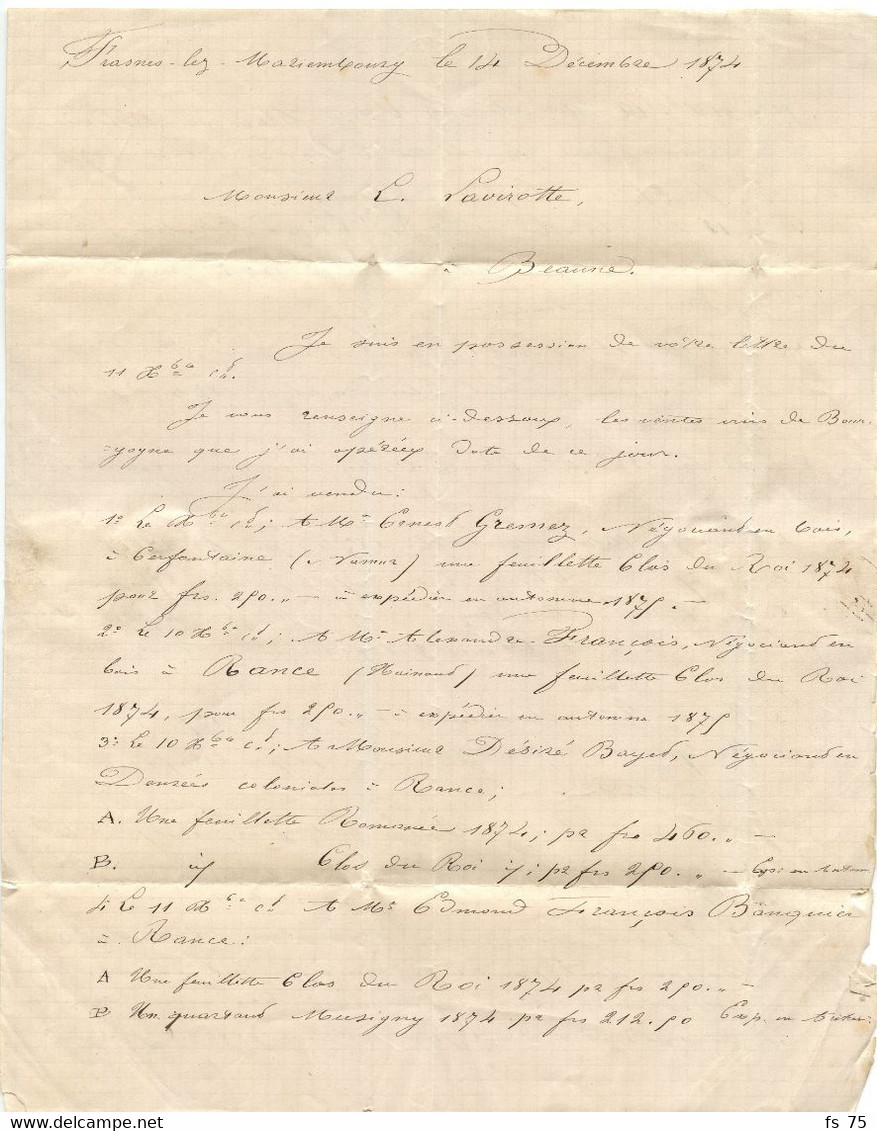 Frasnes-lez-Mariembourg le 14 Décembre 1874
Monsieur L. Lavirotte,
à Beaune.
Je suis en possession de votre lettre du
11 Xbre ct.
Je vous renseigne ci-dessous, les ventes vins de Bour-
=gogne que j'ai opérées date de ce jour.
J'ai vendu:
1º Le Xbre ct; A Mr Ernest Gremez, Négociand en bois,
à Cerfontaine (Namur) une feuillette Clos du Roi 1874
pour frs. 250. „ — à expédier en automne 1875. —
2º Le 10 Xbre ct; A Mr Alexandre François, Négociand en
bois à Rance (Hainaud) une feuillette Clos du Roi
1874, pour frs 250. „ — à expédier en automne 1875
3º Le 10 Xbre ct; A Monsieur Désiré Bayet, Négociand en
Denrées coloniales à Rance;
A. Une feuillette Romanée 1874; pr frs 460. „ —
B. id Clos du Roi id; pr frs 250. „ — Exp: en Autom
4º Le 11 Xbre ct A Mr Edmond François Banquier
à Rance:
A Une feuillette Clos du Roi 1874 pr frs 250. „ —
B Un quartaud Musigny 1874 pr frs 212.50 Exp. en
fs 75